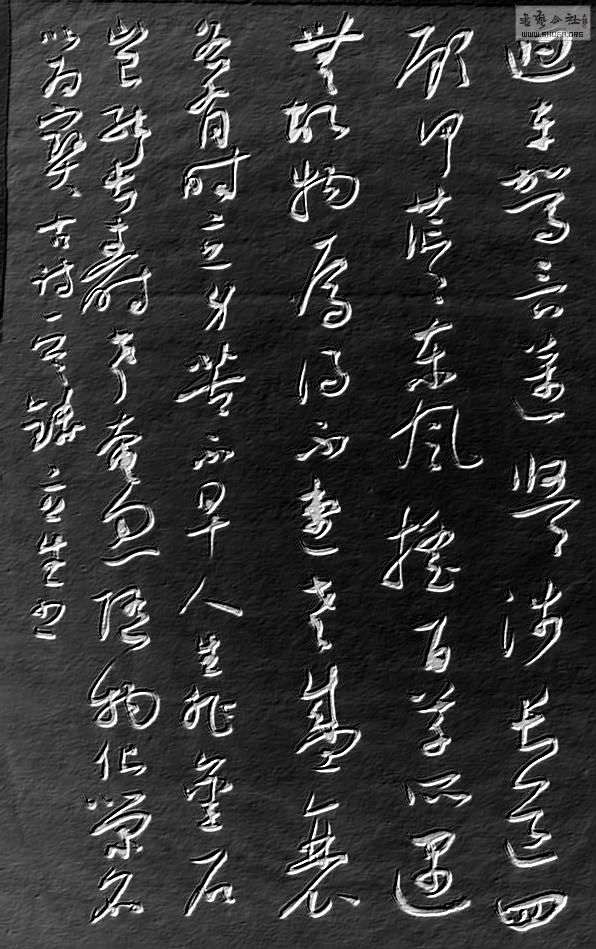 書藝公社
WWW.SHUFA.ORG
迴車駕言邁悠悠涉長道四
顧何茫〻東風搖百草所遇
無故物焉得不速老盛衰
各有時立身苦不早人生非金石
豈能長壽考奄忽隨物化榮名
以為寶 古詩一首 立生书